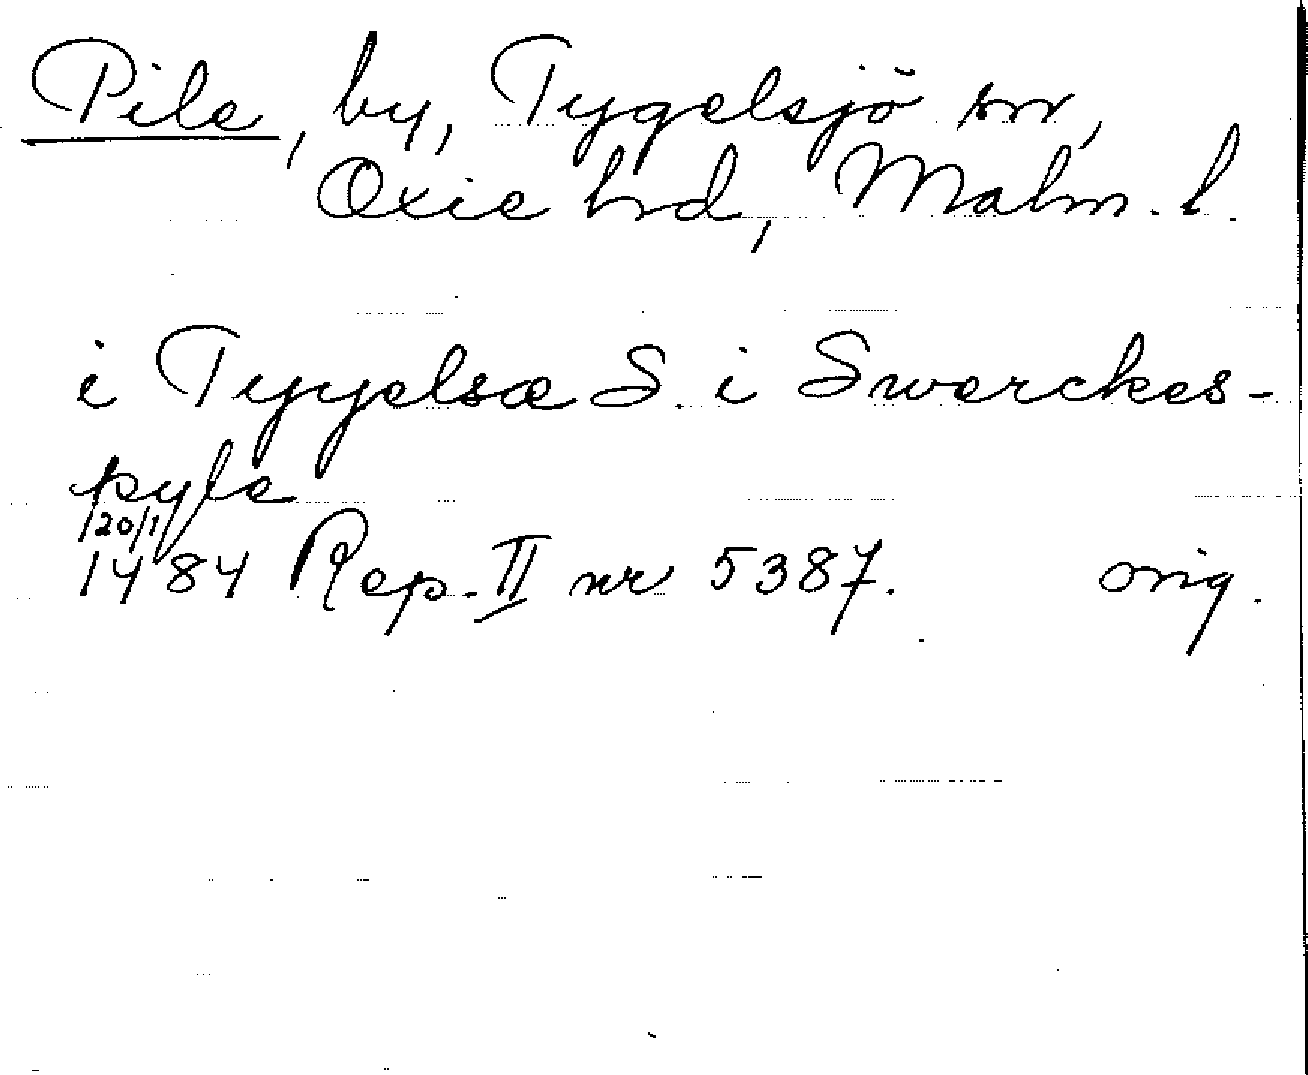 Pile, by, Tygelsjö sn,
Oxie hd, Malm. l.
i Tyyelsæ S. i Swerckes-
pyle
/20/1
1484 Rep. II nr 5387. orig.